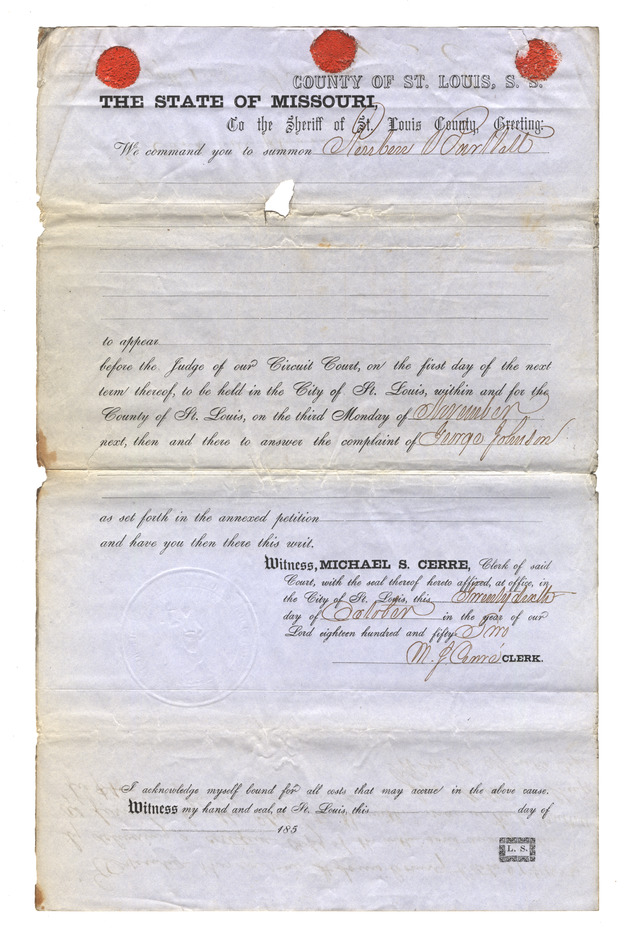 COUNTY OF ST. LOUIS, S. S.
THE STATE OF MISSOURI,
To the Sheriff of St. Louis County, Greeting:
We command you to summon
to appear
before the Judge of our Circuit Court, on the first day of the next
term thereof, to be held in the City of St. Louis, within and for the
County of St. Louis, on the third Monday of November
next, then and there to answer the complaint of George Johnson
as set forth in the annexed petition
and have you then there this writ.
Witness, MICHAEL S. CERRE, Clerk of said
Court, with the seal thereof hereto affixed, at office, in
the City of St. Louis, this
day of October in the year of our
Lord eighteen hundred and fifty Two
M. S. Cerré CLERK.
I acknowledge myself bound for all costs that may accrue in the above cause.
Witness my hand and seal, at St. Louis, this day of
185
L. S.